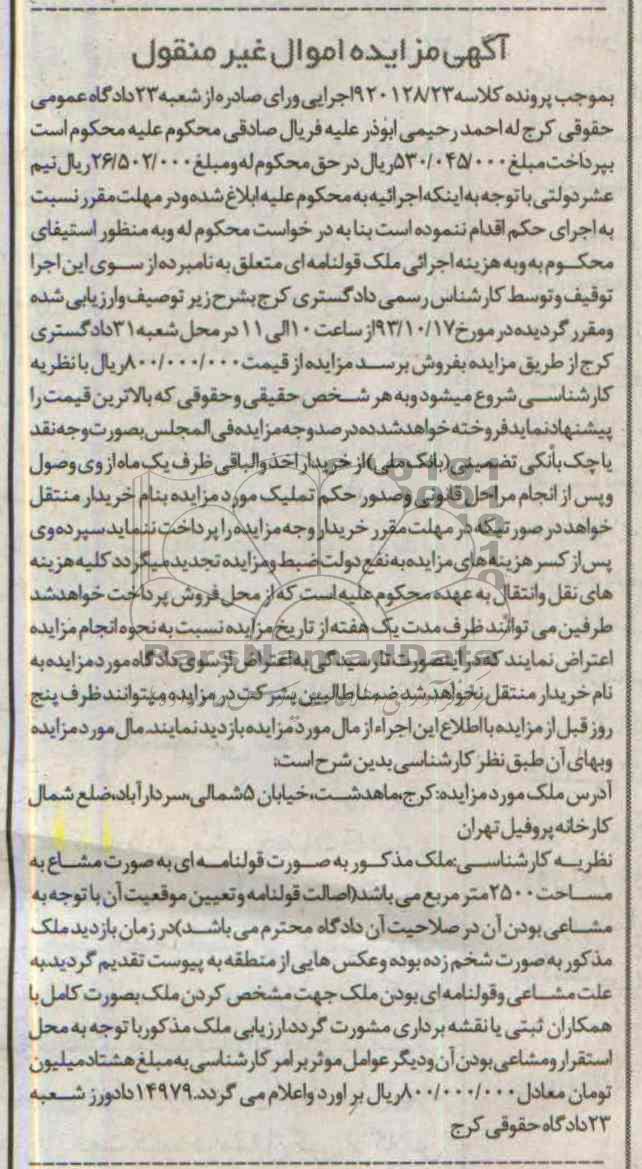 آگهی مزایده اموال غیر منقول
بموجب پرونده کلاسه ۹۲۰۱۲۸/۲۳اجرایی ورای صادره از شعبه ۲۳دادگاه عمومی
حقوقی کرج له احمد رحیمی ابوذر علیه فریال صادقی محکوم علیه محکوم است
بپرداخت مبلغ ۵۳۰/۰۴۵/۰۰۰ریال در حق محکوم له ومبلغ ۲۶/۵۰۲/۰۰۰ریال نیم
عشر دولتی با توجه به اینکه اجرائیه به محکوم علیه ابلاغ شده ودر مهلت مقرر نسبت
به اجرای حکم اقدام ننموده است بنا به در خواست محکوم له وبه منظور استیفای
محکـوم به وبه هزینه اجرائی ملک قولنامه ای متعلق به نامبرده از سـوی این اجرا
توقیف وتوسط کارشناس رسمی دادگستری کرج بشرح زیر توصیف وارزیابی شده
ومقرر گردیده در مورخ ۹۳/۱۰/۱۷از ساعت ۱۰الی ۱۱ در محل شعبه ۳۱دادگستری
کرج از طریق مزایده بفروش برسـد مزایده از قیمت ۸۰۰/۰۰۰/۰۰۰ریال با نظریه
کارشناسـی شروع میشود وبه هر شـخص حقیقی وحقوقی که بالاترین قیمت را
پیشنهاد نماید فروخته خواهد شد ده درصد وجه مزایده فی المجلس بصورت وجه نقد
یا چک بانکی تضمینی(بانک ملی)از خریدار اخذ والباقی ظرف یک ماه از وی وصول
وپس از انجام مراحل قانونی وصدور حکم تملیک مورد مزایده بنام خریدار منتقل
خواهد در صورتیکه در مهلت مقرر خریدار وجه مزایده را پرداخت ننماید سپرده وی
پس از کسر هزینه های مزایده به نفع دولت ضبط ومزایده تجدید میگردد کلیه هزینه
های نقل وانتقال به عهده محکوم علیه است که از محل فروش پرداخت خواهد شد
طرفین می توانند ظرف مدت یک هفته از تاریخ مزایده نسبت به نحوه انجام مزایده
اعتراض نمایند که در اینصورت تا رسیدگی به اعتراض از سوی دادگاه مورد مزایده به
نام خریدار منتقل نخواهد شد ضمنا طالبین بشرکت در مزایده میتوانند ظرف پنج
روز قبل از مزایده با اطلاع این اجراء از مال مورد مزایده بازدید نمایند. مال مورد مزایده
وبهای آن طبق نظر کارشناسی بدین شرح است؛
آدرس ملک مورد مزایده: کرج،ماهدشـت،خیابان ۵شمالی،سردارآباد،ضلع شمال
کارخانه پروفیل تهران
نظریـه کارشناسـی:ملک مذکـور به صـورت قولنامـه ای به صورت مشـاع به
مسـاحت ۲۵۰۰متر مربع می باشد(اصالت قولنامه و تعیین موقعیت آن با توجه به
مشـاعی بودن آن در صلاحیت آن دادگاه محترم می باشـد)در زمان بازدید ملک
مذکور به صورت شخم زده بوده وعکس هایی از منطقه به پیوست تقدیم گردید.به
علت مشـاعی وقولنامه ای بودن ملک جهت مشخص کردن ملک بصورت کامل با
همکاران ثبتی یا نقشه برداری مشورت گردد.ارزیابی ملک مذکوربا توجه به محل
استقرار ومشاعی بودن آن ودیگر عوامل موثر بر امر کارشناسی به مبلغ هشتاد میلیون
تومان معادل ۸۰۰/۰۰۰/۰۰۰ریال بر اورد واعلام می گردد.۱۴۹۷۹ دادورز شـعبه
۲۳دادگاه حقوقی کرج
ParsNamadData